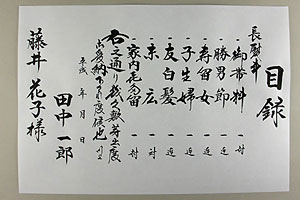 目録
長熨斗
御帯料 一封
勝男節 一連
寿留女 一連
子生婦 一連
友白髪 一連
末広 一対
家内喜多留 一封
右之通り幾久敷芽出度
御受納下され度候也
平成 年 月 日
田中一郎
藤井花子様